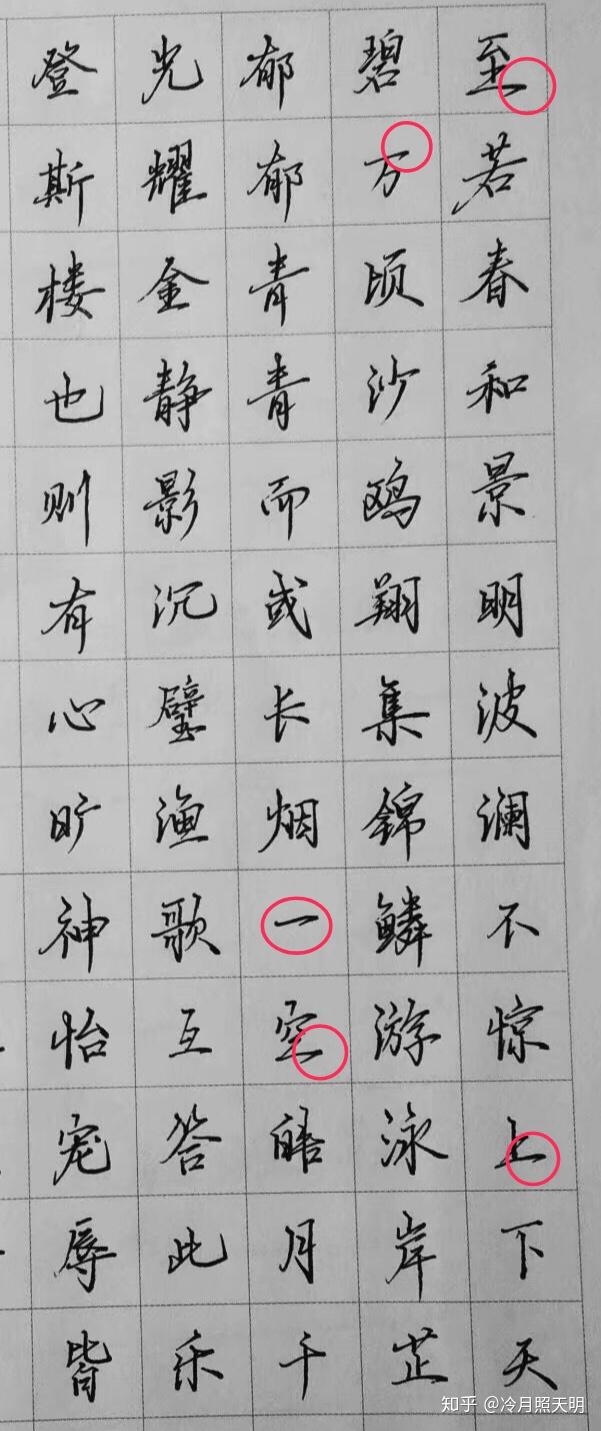 至若春和景明波澜不惊上下天
碧万顷沙鸥翔集锦鳞游泳岸芷
郁郁青青而或长烟一空皓月千
光耀金静影沉璧渔歌互答此乐
登斯楼也则有心旷神怡宠辱皆
知乎 @冷月照天明